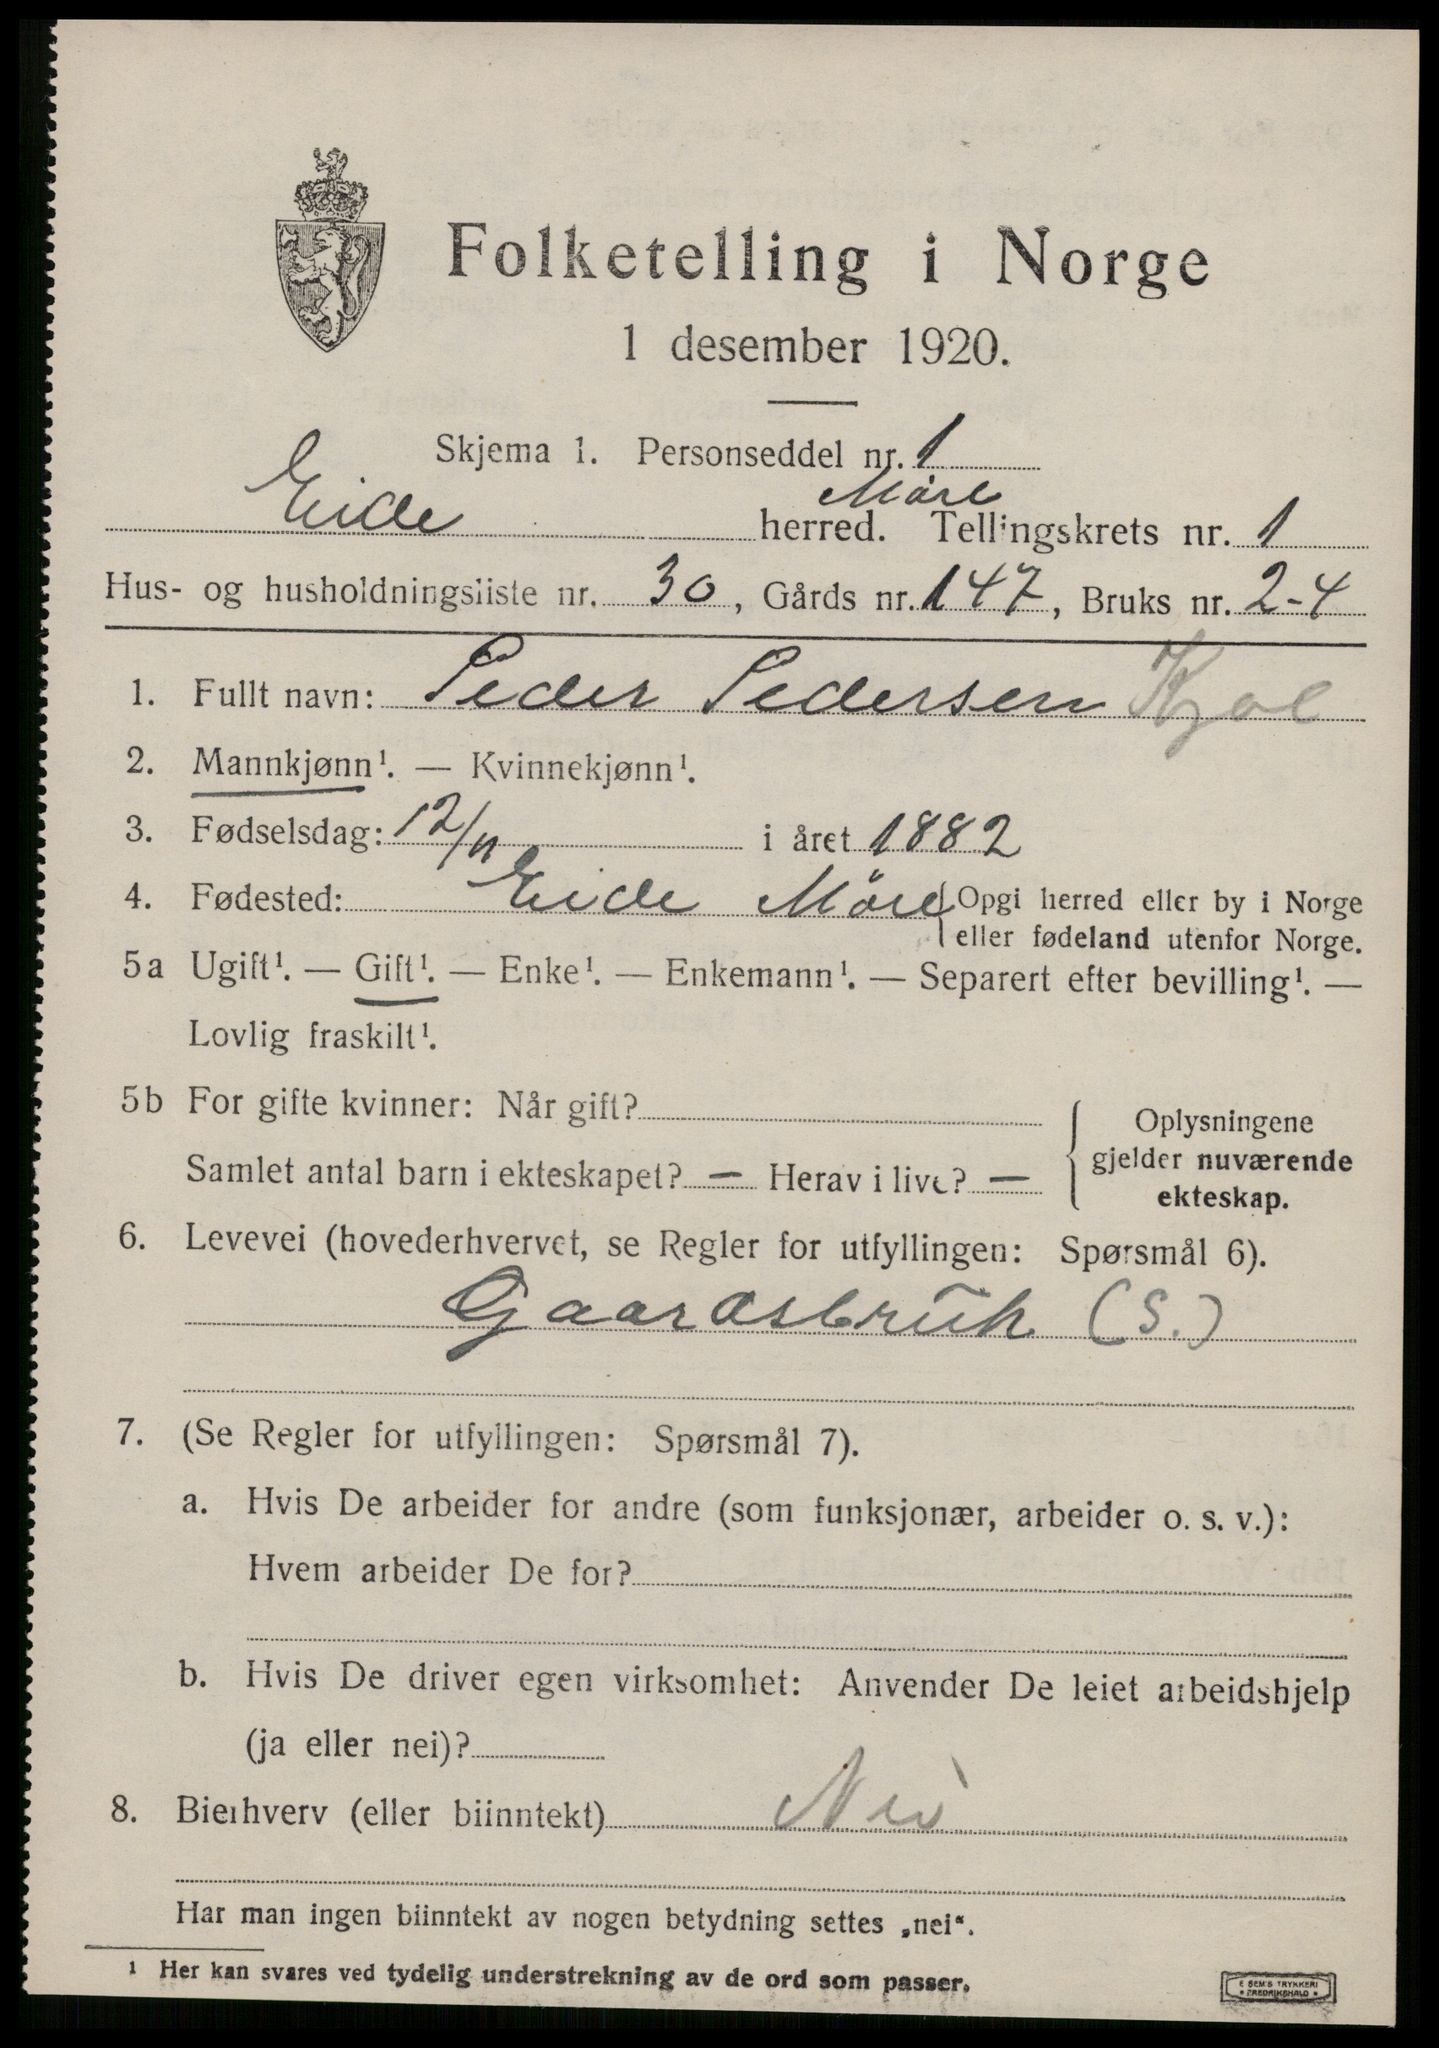 Folketelling i Norge
1 desember 1920.
Skjema 1. Personseddel nr. 1
Møre
Eide herred. Tellingskrets nr. 1
Hus- og husholdningsliste nr. 30, Gårds nr. 147, Bruks nr. 2-4
1. Fullt navn: Peder Pedersen Kjøl
2. Mannkjønn¹. — Kvinnekjønn¹.
3. Fødselsdag: 12/11 i året 1882
4. Fødested: Eide Møre {Opgi herred eller by i Norge
eller fødeland utenfor Norge.
5a Ugift¹. — Gift¹. — Enke¹. — Enkemann¹. — Separert efter bevilling¹. —
Lovlig fraskilt¹.
5b For gifte kvinner: Når gift?
Samlet antal barn i ekteskapet? — Herav i live? —
Oplysningene
gjelder nuværende
ekteskap.
6. Levevei (hovederhvervet, se Regler for utfyllingen: Spørsmål 6).
Gaardsbruk (S.)
7. (Se Regler for utfyllingen: Spørsmål 7).
a. Hvis De arbeider for andre (som funksjonær, arbeider o. s. v.):
Hvem arbeider De for?
b. Hvis De driver egen virksomhet: Anvender De leiet arbeidshjelp
(ja eller nei)?
8. Bierhverv (eller biinntekt) Nei
Har man ingen biinntekt av nogen betydning settes „nei“.
¹ Her kan svares ved tydelig understrekning av de ord som passer.
E SEM'S TRYKKERI
* FREDRIKSHALD *